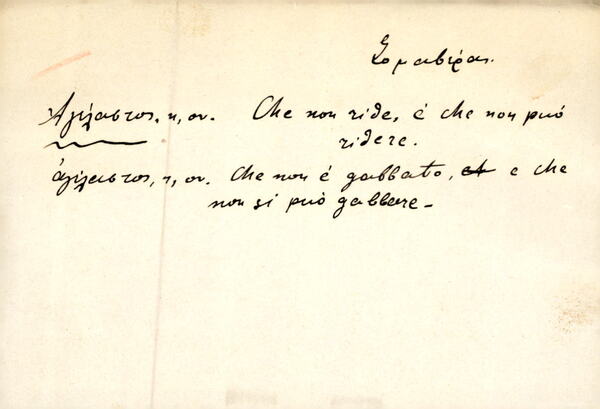 Σομαβέρας.
Αγέλαστος, η, ον. Che non ride, é che non può
ridere.
ἀγέλαστος, η, ον. Che non é gabbato, e che
non si può gabbare -